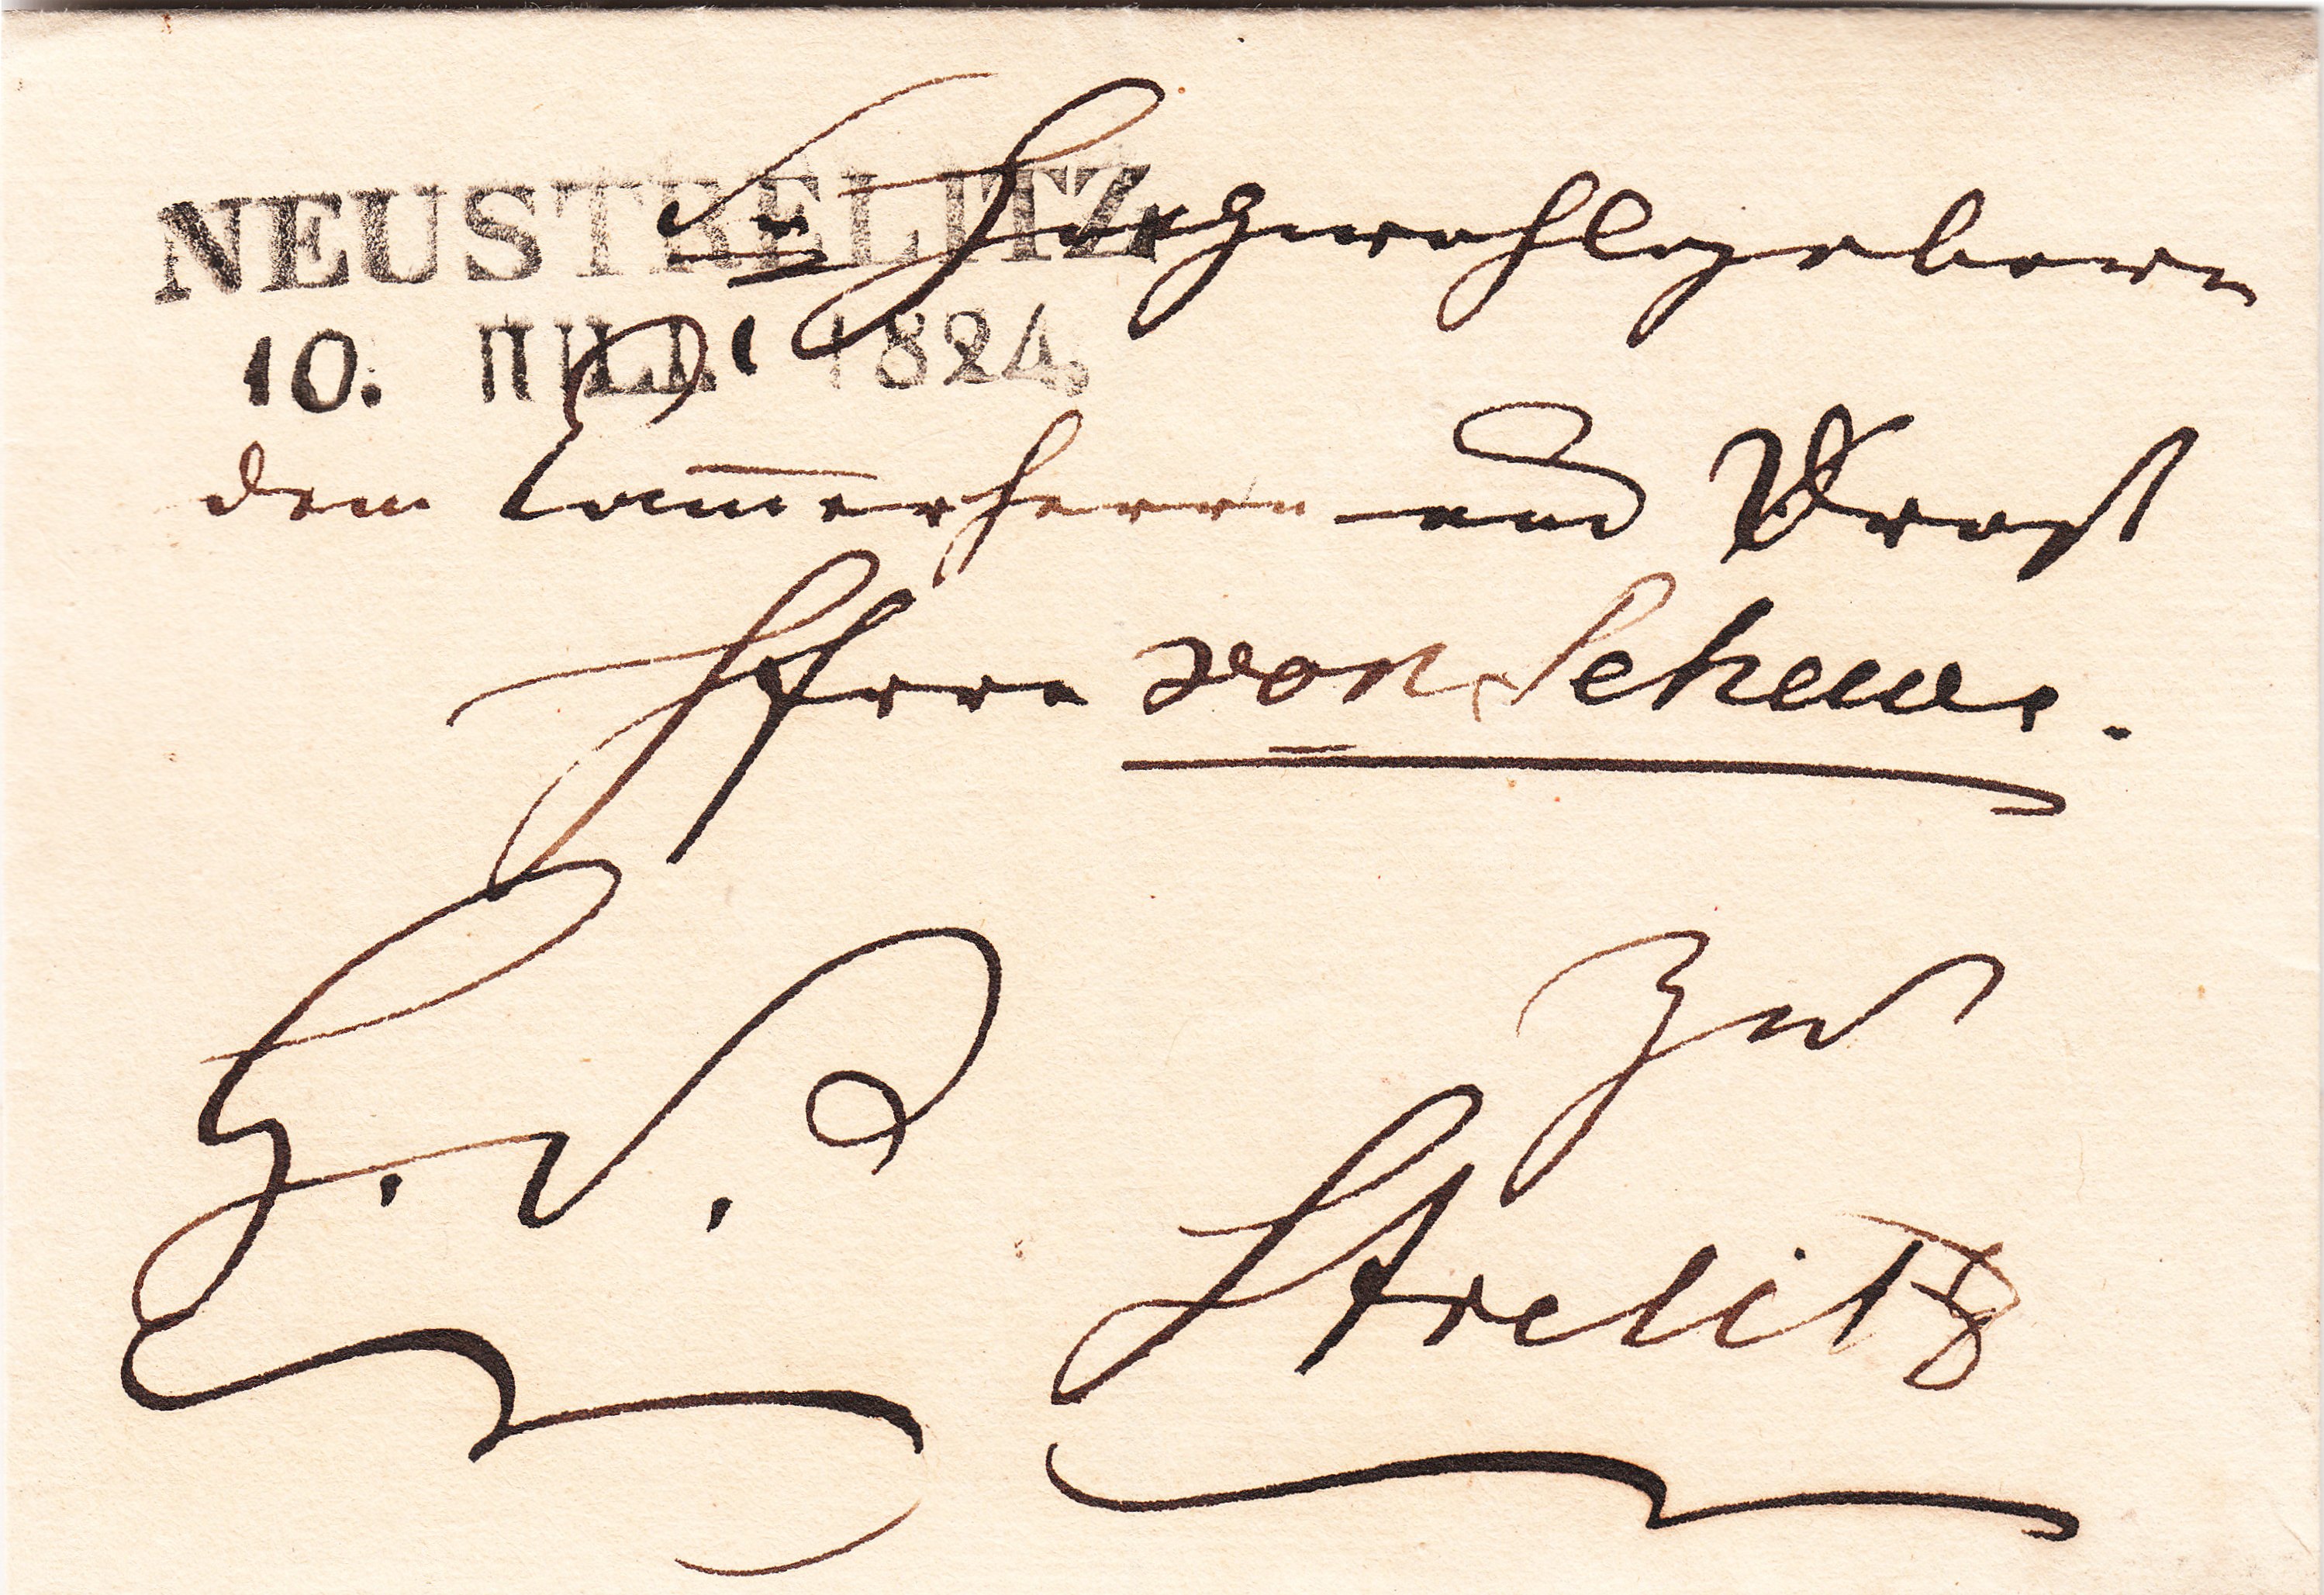 NEUSTRELITZ.
10. IULI. 1824.
Hochwohlgeborn
dem Cam̅erherrn und Drost
Herrn von Scheve.
zu
Strelitz